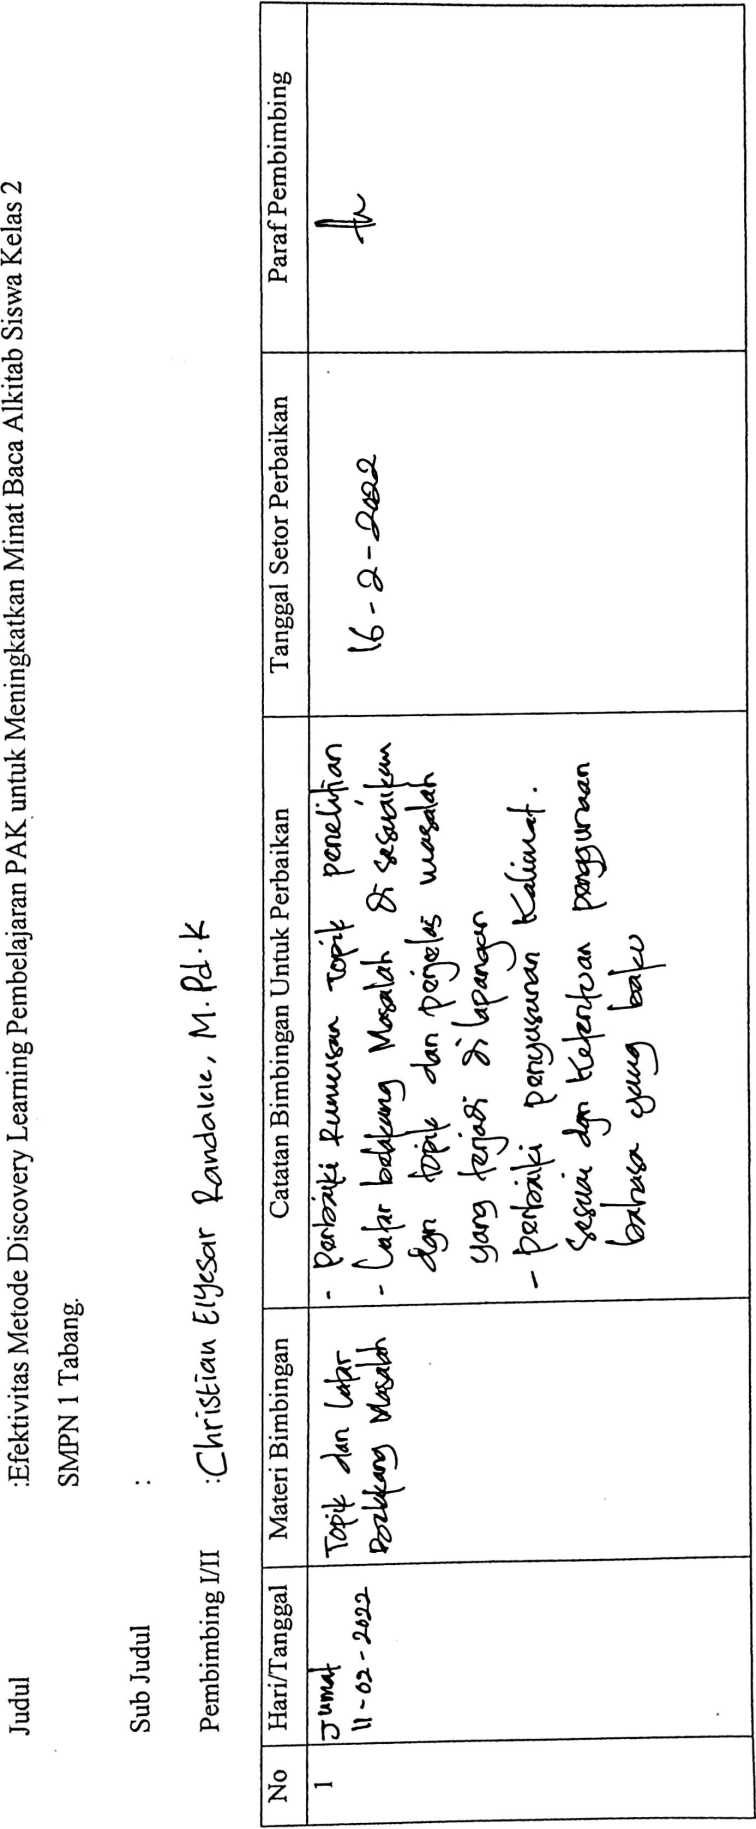 Judul :Efektivitas Metode Discovery Learning Pembelajaran PAK untuk Meningkatkan Minat Baca Alkitab Siswa Kelas 2
SMPN 1 Tabang.
Sub Judul :
Pembimbing I/II :Christian Elyesar Randalele, M.Pd.K
No Hari/Tanggal Materi Bimbingan Catatan Bimbingan Untuk Perbaikan Tanggal Setor Perbaikan Paraf Pembimbing
1
Jumat
11-02-2022
Topik dan Latar
Belakang Masalah
- Perbaiki Rumusan Topik penelitian
- Latar belakang Masalah di sesuaikan
dgn topik dan penjelas masalah
yang terjadi di lapangan
- perbaiki penyusunan Kalimat.
sesuai dgn Ketentuan penggunaan
bahasa yang baku
16-2-2022